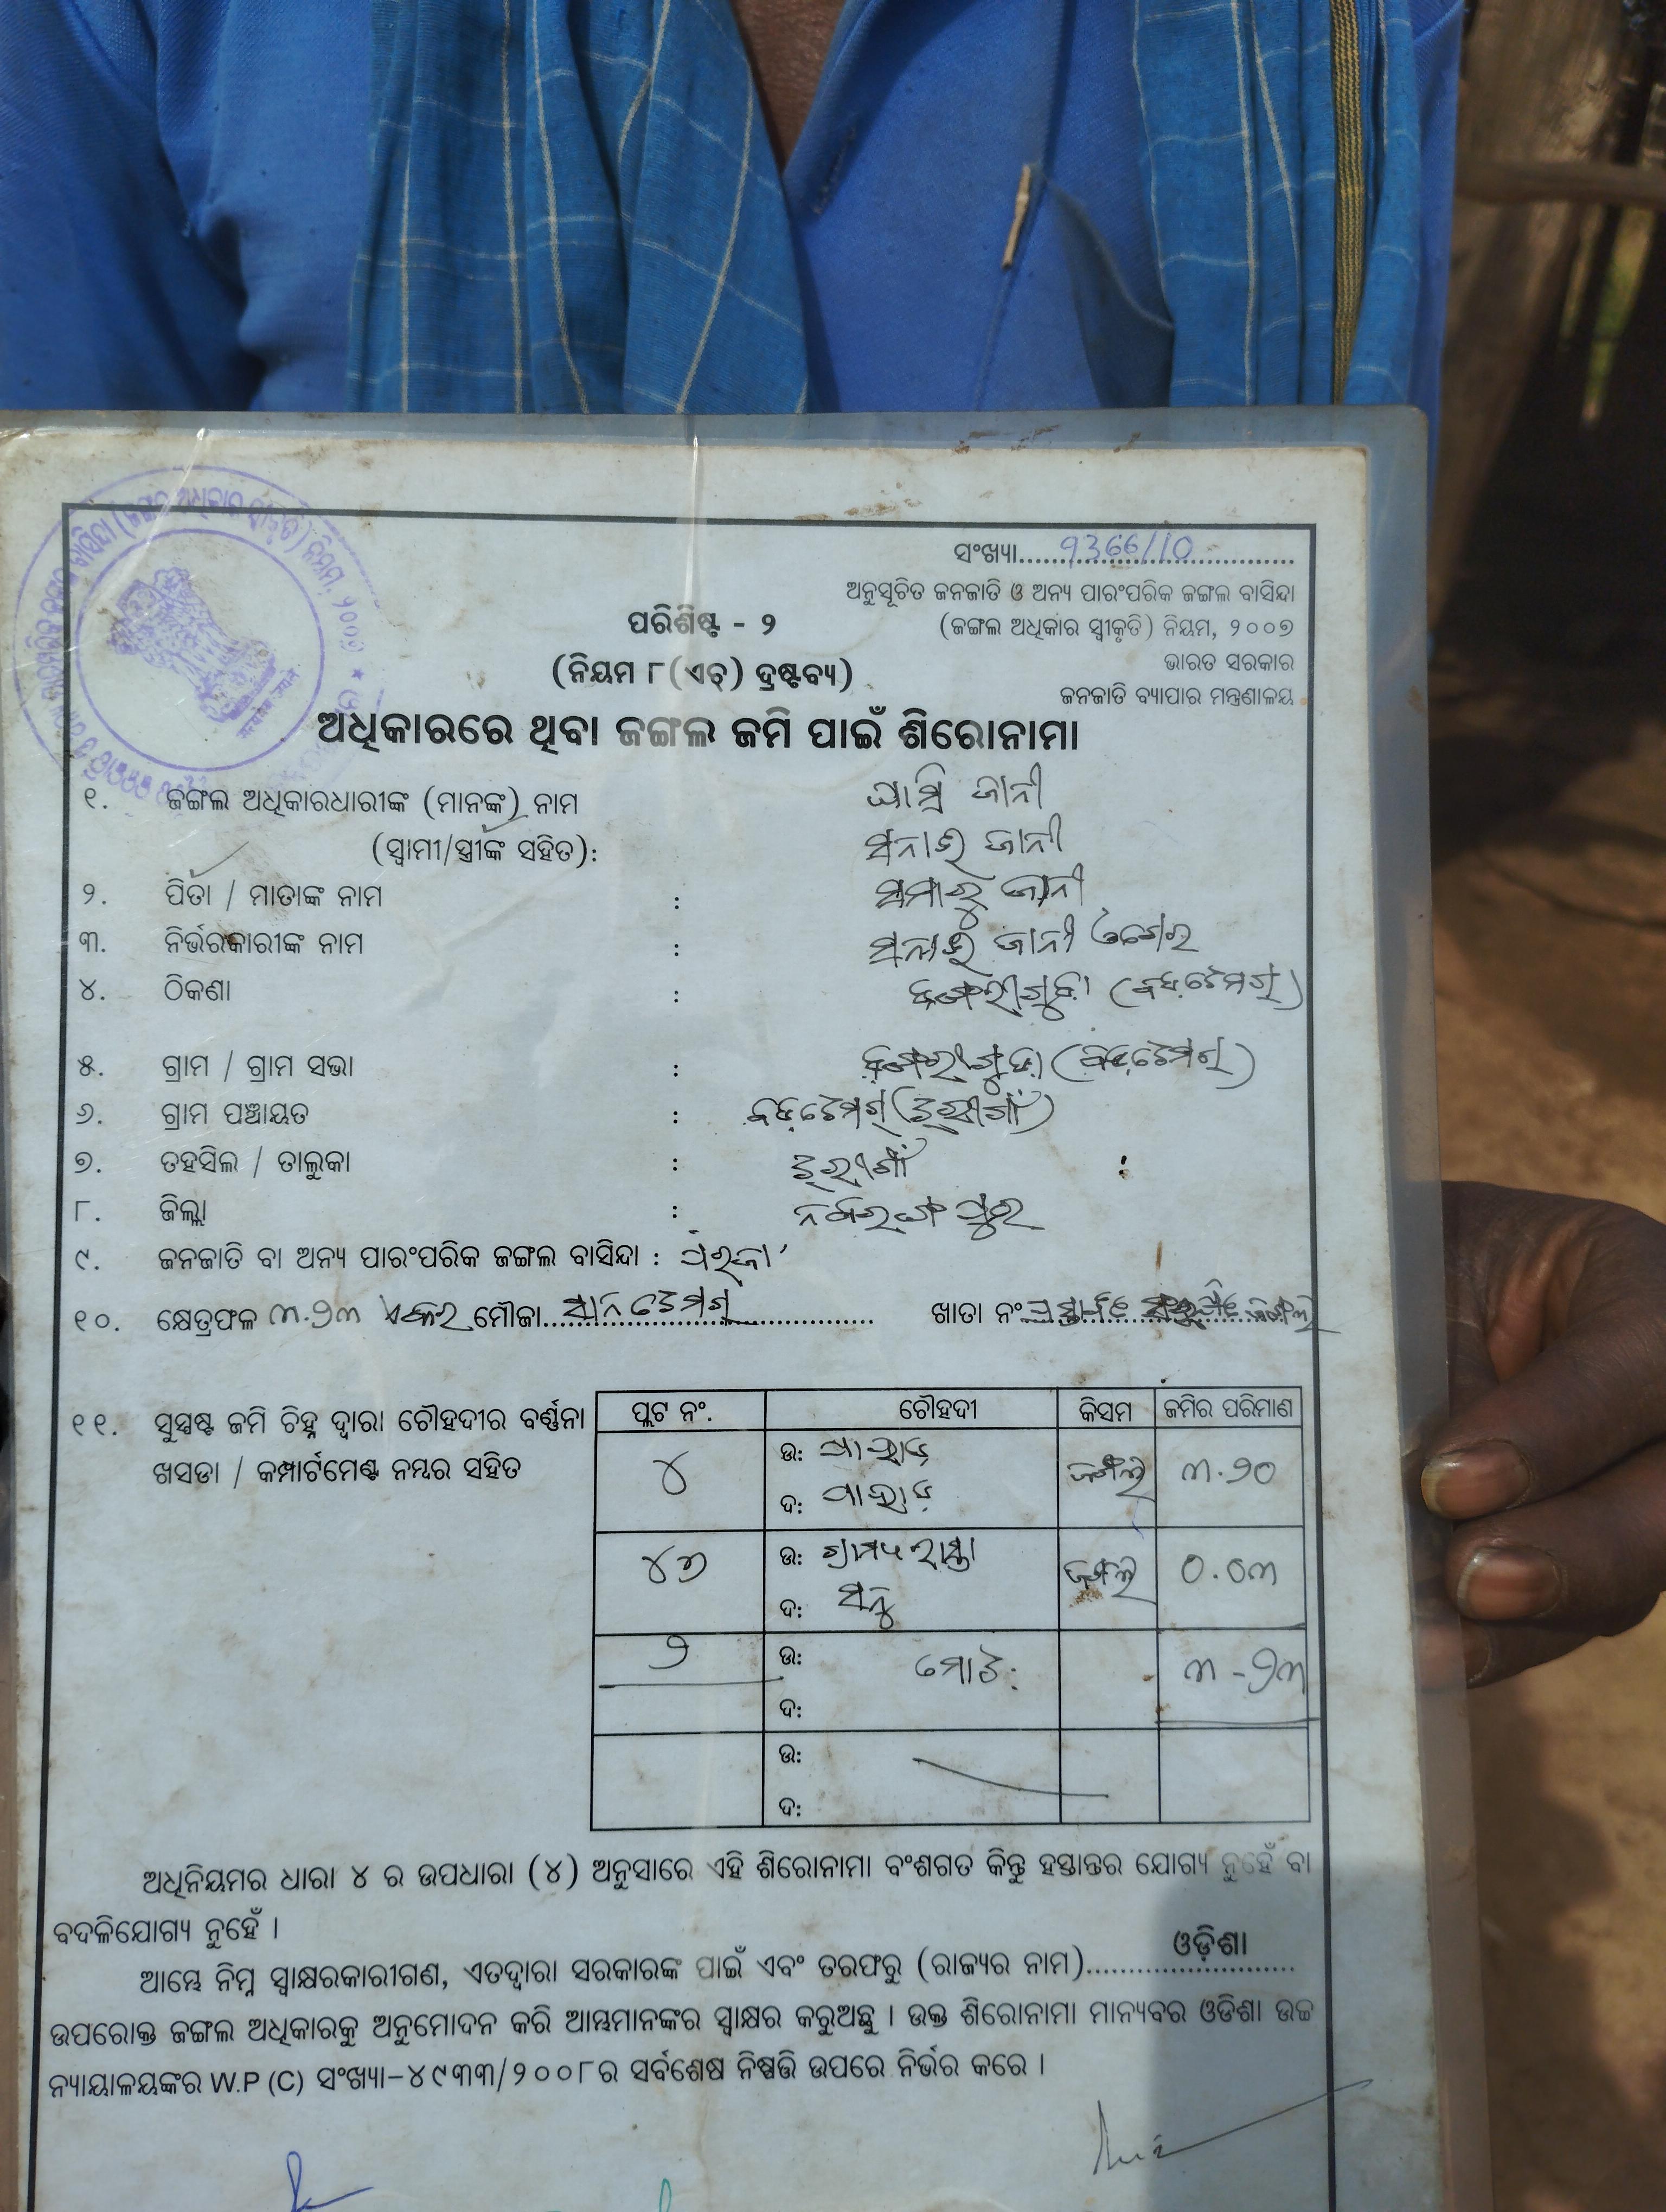 ସଂଖ୍ୟା......9366/10......
ଅନୁସୂଚିତ ଜନଜାତି ଓ ଅନ୍ୟ ପାରଂପରିକ ଜଙ୍ଗଲ ବାସିନ୍ଦା
(ଜଙ୍ଗଲ ଅଧିକାର ସ୍ୱୀକୃତି) ନିୟମ, ୨୦୦୭
ଭାରତ ସରକାର
ଜନଜାତି ବ୍ୟାପାର ମନ୍ତ୍ରଣାଳୟ
ପରିଶିଷ୍ଟ - ୨
(ନିୟମ ୮(ଏଚ୍) ଦ୍ରଷ୍ଟବ୍ୟ)
ଅଧିକାରରେ ଥିବା ଜଙ୍ଗଲ ଜମି ପାଇଁ ଶିରୋନାମା
୧. ଜଙ୍ଗଲ ଅଧିକାରଧାରୀଙ୍କ (ମାନଙ୍କ) ନାମ ଜାନୀ
(ସ୍ୱାମୀ/ସ୍ତ୍ରୀଙ୍କ ସହିତ): ଜାନୀ
୨. ପିତା / ମାତାଙ୍କ ନାମ : ସମାରୁ ଜାନୀ
୩. ନିର୍ଭରକାରୀଙ୍କ ନାମ : ଜାନୀ
୪. ଠିକଣା :
୫. ଗ୍ରାମ / ଗ୍ରାମ ସଭା :
୬. ଗ୍ରାମ ପଞ୍ଚାୟତ :
୭. ତହସିଲ / ତାଲୁକା :
୮. ଜିଲ୍ଲା : ନବରଙ୍ଗପୁର
୯. ଜନଜାତି ବା ଅନ୍ୟ ପାରଂପରିକ ଜଙ୍ଗଲ ବାସିନ୍ଦା : ପରଜା
୧୦. କ୍ଷେତ୍ରଫଳ ୩.୨୩ ଏକର ମୌଜା...... ଖାତା ନଂ......
୧୧. ସୁସ୍ପଷ୍ଟ ଜମି ଚିହ୍ନ ଦ୍ୱାରା ଚୌହଦୀର ବର୍ଣ୍ଣନା
ଖସଡା / କମ୍ପାର୍ଟମେଣ୍ଟ ନମ୍ବର ସହିତ
ପ୍ଲଟ ନଂ. ଚୌହଦୀ କିସମ ଜମିର ପରିମାଣ
୪ ଉ: ପାହାଡ଼ ଜଙ୍ଗଲ ୩.୨୦
ଦ: ପାହାଡ଼
୪୭ ଉ: ଗ୍ରାମ୍ୟ ରାସ୍ତା ଜଙ୍ଗଲ ୦.୦୩
ଦ:
୨ ଉ: ମୋଟ: ୩-୨୩
ଦ:
ଉ:
ଦ:
ଅଧିନିୟମର ଧାରା ୪ ର ଉପଧାରା (୪) ଅନୁସାରେ ଏହି ଶିରୋନାମା ବଂଶଗତ କିନ୍ତୁ ହସ୍ତାନ୍ତର ଯୋଗ୍ୟ ନୁହେଁ ବା
ବଦଳିଯୋଗ୍ୟ ନୁହେଁ ।
ଆମ୍ଭେ ନିମ୍ନ ସ୍ୱାକ୍ଷରକାରୀଗଣ, ଏତଦ୍ୱାରା ସରକାରଙ୍କ ପାଇଁ ଏବଂ ତରଫରୁ (ରାଜ୍ୟର ନାମ)......ଓଡ଼ିଶା......
ଉପରୋକ୍ତ ଜଙ୍ଗଲ ଅଧିକାରକୁ ଅନୁମୋଦନ କରି ଆମ୍ଭମାନଙ୍କର ସ୍ୱାକ୍ଷର କରୁଅଛୁ । ଉକ୍ତ ଶିରୋନାମା ମାନ୍ୟବର ଓଡିଶା ଉଚ୍ଚ
ନ୍ୟାୟାଳୟଙ୍କର W.P (C) ସଂଖ୍ୟା-୪୯୩୩/୨୦୦୮ର ସର୍ବଶେଷ ନିଷ୍ପତ୍ତି ଉପରେ ନିର୍ଭର କରେ ।